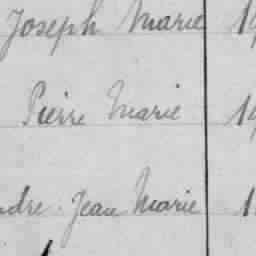 Joseph Marie 19
Pierre Marie 19
Jean Marie